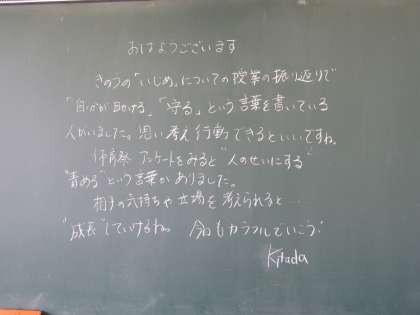 おはようございます
きのうの「いじめ」についての授業の振り返りで
「自分が助ける」「守る」という言葉を書いている
人がいました。思い考え行動できるといいですね。
体育祭 アンケートをみると "人のせいにする"
"責める" という言葉がありました。
相手の気持ちや立場を考えられると…
"成長" していけるね。 今日もカラフルでいこう!
Kitada